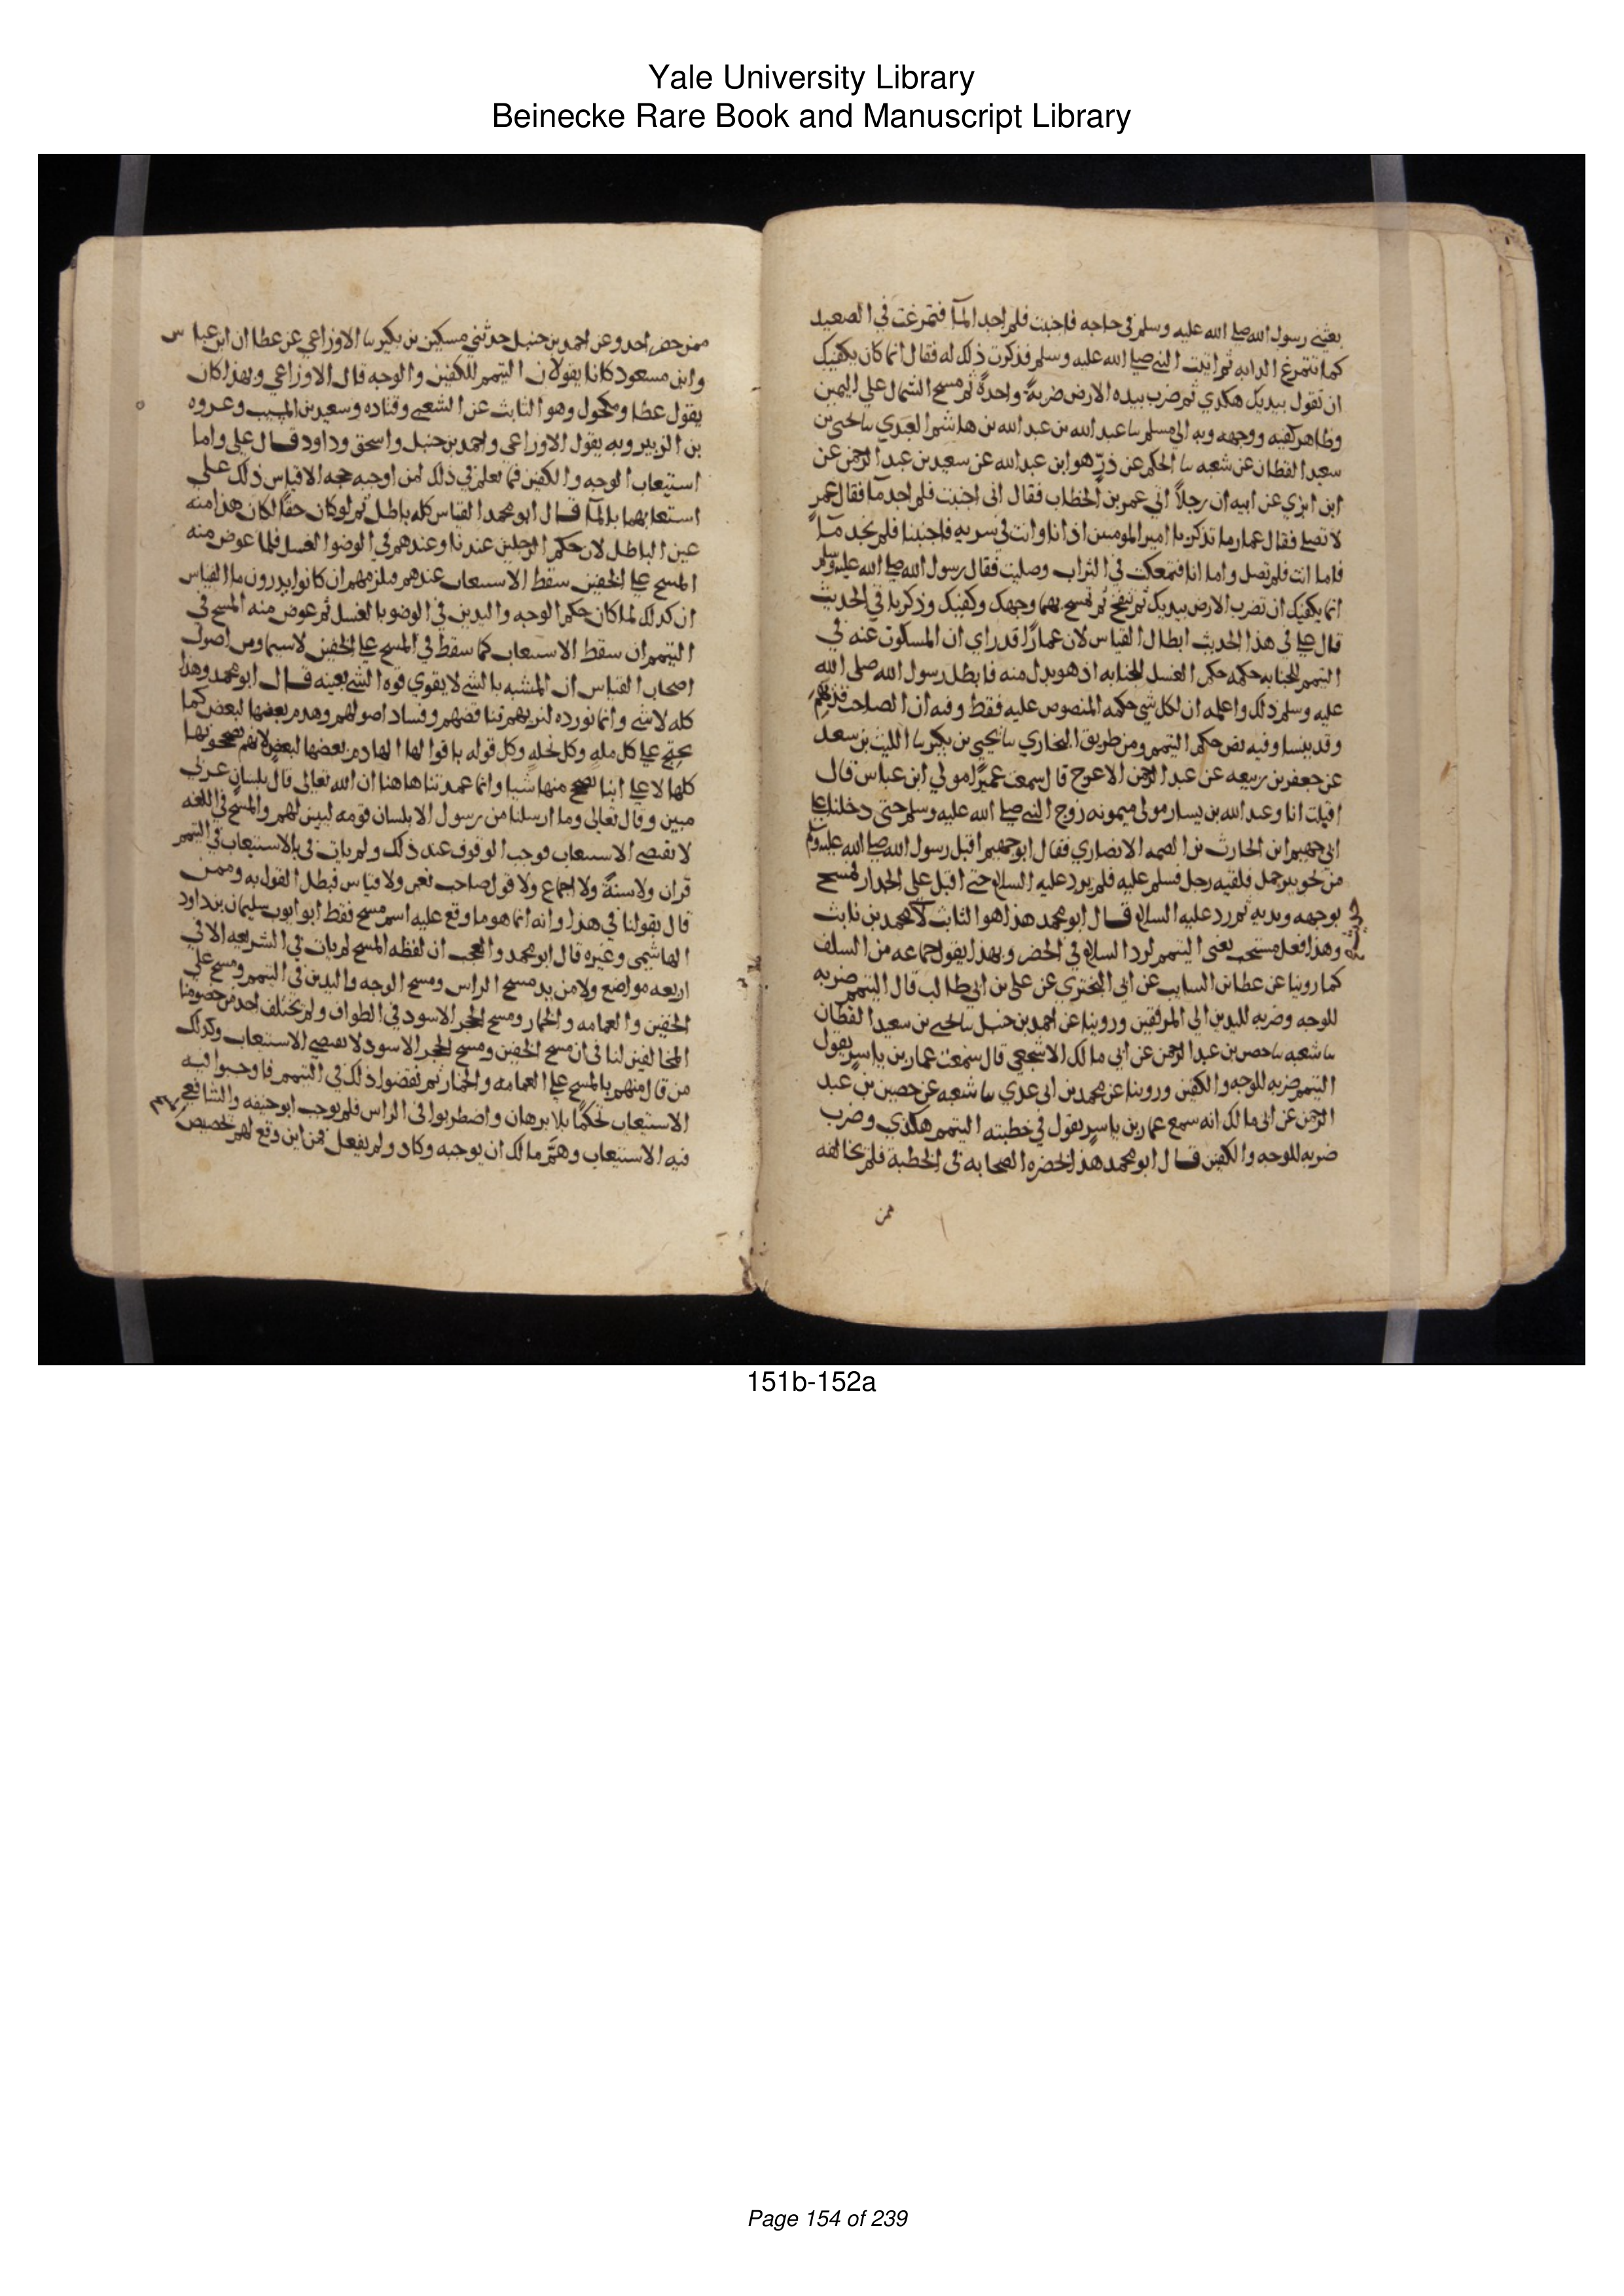 Yale University Library
Beinecke Rare Book and Manuscript Library
بعثني رسول الله صلى الله عليه وسلم في حاجه فاجنبت فلم اجد المآ فتمرغت في الصعيد
كما تتمرغ الدابه ثم اتيت النبي صلى الله عليه وسلم فذكرت ذلك له فقال انما كان يكفيك
ان تقول بيديك هكذي ثم ضرب بيده الارض ضربة واحدة ثم مسح الشمال على اليمين
وظاهر كفيه ووجهه وبه الى مسلم نا عبد الله بن عبد الله بن هاشم العبدي نا يحيى بن
سعيد القطان عن شعبه نا الحكم عن ذرّ هو ابن عبد الله عن سعيد بن عبد الرحمن عن
ابن ابزي عن ابيه ان رجلاً اتي عمر بن الخطاب فقال اني اجنبت فلم اجد مآ فقال عمر
لا تصلي فقال عمار ما تذكر يا امير المومنين اذ انا وانت في سريه فاجنبنا فلم نجد مآ
فاما انت فلم تصل واما انا فتمعكت في التراب وصليت فقال رسول الله صلى الله عليه وسلم
انما يكفيك ان تضرب الارض بيديك ثم تنفخ ثم تمسح بهما وجهك وكفيك وذكر باقي الحديث
قال علي في هذا الحديث ابطال القياس لان عمارًا قدر اي ان المسكوت عنه في
التيمم للجنابه حكمه حكم الغسل للجنابه اذ هو بدل منه فابطل رسول الله صلى الله
عليه وسلم ذلك واعلمه ان لكل شي حكمه المنصوص عليه فقط وفيه ان الصاحب قد يهم
وقد ينسا وفيه نص حكم التيمم ومن طريق البخاري نا يحيي بن بكير نا الليث بن سعد
عن جعفر بن ربيعه عن عبد الرحمن الاعرج قال سمعت عميرًا مولي ابن عباس قال
اقبلت انا وعبد الله بن يسار مولى ميمونه زوج النبي صلى الله عليه وسلم حتى دخلنا على
ابي جهيم ابن الحارث بن الصمه الانصاري فقال ابو جهيم اقبل رسول الله صلى الله عليه وسلم
من نحو بير جمل فلقيه رجل فسلم عليه فلم يرد عليه السلام حتى اقبل على الجدار فمسح
بوجهه ويديه ثم رد عليه السلام قال ابو محمد هذا هو الثابت لا محمد بن ثابت
وهذا فعل مستحب يعني التيمم لرد السلام في الحضر وبهذا يقول جماعه من السلف
كما روينا عن عطا بن السايب عن ابي البختري عن علي بن ابي طالب قال التيمم ضربه
للوجه وضربه لليدين الى المرفقين وروينا عن احمد بن حنبل نا يحيى بن سعيد القطان
نا شعبه نا حصين بن عبد الرحمن عن ابي مالك الاشجعي قال سمعت عمار بن ياسر يقول
التيمم ضربه للوجه والكفين وروينا عن محمد بن ابي عدي نا شعبه عن حصين بن عبد
الرحمن عن ابي مالك انه سمع عمار بن ياسر يقول في خطبته التيمم هكذي وضرب
ضربه للوجه والكفين قال ابو محمد هذا بحضره الصحابه في الخطبة فلم يخالفه
ممن
ممن حضر احد وعن احمد بن حنبل حدثني مسكين بن بكير نا الاوزاعي عن عطا ان ابن عباس
وابن مسعود كانا يقولان التيمم للكفين والوجه قال الاوزاعي وبهذا كان
يقول عطا ومكحول وهو الثابت عن الشعبي وقتاده وسعيد بن المسيب وعروه
بن الزبير وبه يقول الاوزاعي واحمد بن حنبل واسحق وداود قال علي واما
استيعاب الوجه والكفين فما نعلم في ذلك لمن اوجبه حجه الا قياس ذلك على
استيعابهما بالمآ قال ابو محمد القياس كله باطل ثم لو كان حقًا لكان هذا منه
عين الباطل لان حكم الرجلين عندنا وعندهم في الوضو الغسل فلما عوض منه
المسح على الخفين سقط الاستيعاب عندهم فيلزمهم ان كانوا يدرون ما القياس
ان كذلك لما كان حكم الوجه واليدين في الوضو بالغسل ثم عوض منه المسح في
التيمم ان سقط الاستيعاب كما سقط في المسح على الخفين لا سيما ومن اصول
اصحاب القياس ان المشبه بالشي لا يقوي قوه الشي بعينه قال ابو محمد وهذا
كله لا شي وانما نورده لنريهم تناقضهم وفساد اصولهم وهدم بعضها لبعض كما
نحتج على كل مله وكل نحله وكل قوله باقوالها الهادم بعضها لبعض لانهم يصححونها
كلها لا على اننا نصحح منها شيا وانما عمدتنا هاهنا ان الله تعالى قال بلسان عربي
مبين وقال تعالى وما ارسلنا من رسول الا بلسان قومه ليبين لهم والمسح في اللغه
لا يقتضي الاستيعاب فوجب الوقوف عند ذلك ولم يات في الاستيعاب في التيمم
قران ولا سنة ولا اجماع ولا قول صاحب نعم ولا قياس فبطل القول به وممن
قال بقولنا في هذا وانه انما هو ما وقع عليه اسم مسح فقط ابو ايوب سليمان بن داود
الهاشمي وغيره قال ابو محمد والعجب ان لفظه المسح لم يات في الشريعه الا في
اربعه مواضع ولا مزيد مسح الراس ومسح الوجه واليدين في التيمم ومسح على
الخفين والعمامه والخمار ومسح الحجر الاسود في الطواف ولم يختلف احد من خصومنا
المخالفين لنا في ان مسح الخفين ومسح الحجر الاسود لا يقتضي الاستيعاب وكذلك
من قال منهم بالمسح على العمامه والخمار ثم نقضوا ذلك في التيمم فاوجبوا فيه
الاستيعاب تحكمًا بلا برهان واضطربوا في الراس فلم يوجب ابو حنيفه والشافعي
فيه الاستيعاب وهمّ مالك ان يوجبه وكاد ولم يفعل فمن اين وقع لهم تخصيص
151b-152a
Page 154 of 239